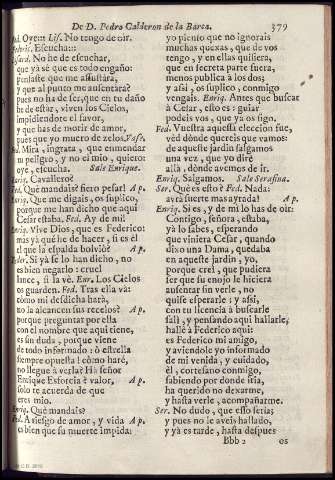 De D. Pedro Calderon de la Barca. 379
Oyeme Lis. No tengo de oir.
Escucha:::
No he de escuchar,
que yà sè que es todo engaño:
pensaste que me assustàra,
y que al punto me ausentàra?
pues no ha de ser, que en tu daño
he de estàr, viven los Cielos,
impidiendote el favor,
y que has de morir de amor,
pues que yo muero de zelos. Vase.
Mira, ingrata, que enmendar
tu peligro, y no el mio, quiero:
oye, escucha. Sale Enrique.
Enriq. Cavallero?
Fed. Què mandais? fiero pesar! Ap.
Enriq. Que me digais, os suplico,
porque me han dicho que aqui
Cesar estaba. Fed. Ay de mi!
Enriq. Vive Dios, que es Federico:
mas yà què he de hacer, si es èl
el que la espalda bolviò? Ap.
Feder. Si yà se lo han dicho, no
es bien negarlo: cruel
lance, si la vè. Enr. Los Cielos
os guarden. Fed. Tras ella và:
còmo mi desdicha harà,
no la alcancen sus recelos? Ap.
porque preguntar por ella
con el nombre que aqui tiene,
es sin duda, porque viene
de todo informado: ò estrella
siempre opuesta! còmo harè,
no llegue à verla? Ha señor
Enrique Esforcia? valor, Ap.
solo te acuerda de que
eres mio.
Enriq. Què mandais?
Fed. A riesgo de amor, y vida Ap.
es bien que su muerte impida:
yo pienso que no ignorais
muchas quexas, que de vos
tengo, y en ellas quisiera,
que en secreta parte fuera,
menos publica à los dos;
y assi, os suplico, conmigo
vengais. Enriq. Antes que buscar
à Cesar, esto es: guiar
podeis vos, que yà os sigo.
Fed. Vuestra aquesta eleccion fue,
vèd dònde quereis que vamos:
de aqueste jardin salgamos
una vez, que yo dirè
allà, dònde avemos de ir.
Enriq. Salgamos. Sale Serafina.
Ser. Què es esto? Fed. Nada:
avrà suerte mas ayrada! Ap.
Enriq. Si es, y de mi lo has de oir:
Contigo, señora, estaba,
yà lo sabes, esperando
que viniera Cesar, quando
dixo una Dama, quedaba
en aqueste jardin, yo,
porque creì, que pudiera
ser que su enojo le hiciera
ausentar sin verle, no
quise esperarle: y assi,
con tu licencia à buscarle
salì, y pensando aqui hallarle,
hallè à Federico aqui:
es Federico mi amigo,
y aviendole yo informado
de mi venida, y cuidado,
èl, cortesano conmigo,
sabiendo por dònde iria,
ha querido no dexarme,
y hasta verle, acompañarme.
Ser. No dudo, que esso seria;
y pues no le aveis hallado,
y yà es tarde, hasta despues
Bbb 2 os